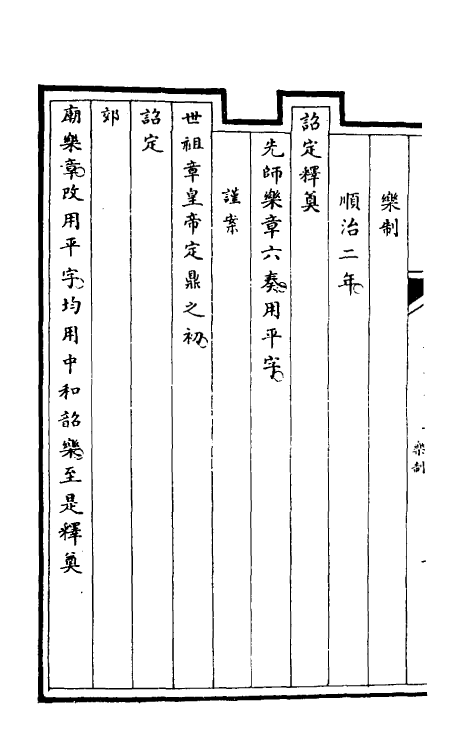 樂制
順治二年。
詔定釋奠
先師樂章六奏。用平字。
謹案
世祖章皇帝定鼎之初。
詔定
郊
廟樂章。改用平字。均用中和韶樂。至是釋奠
樂制